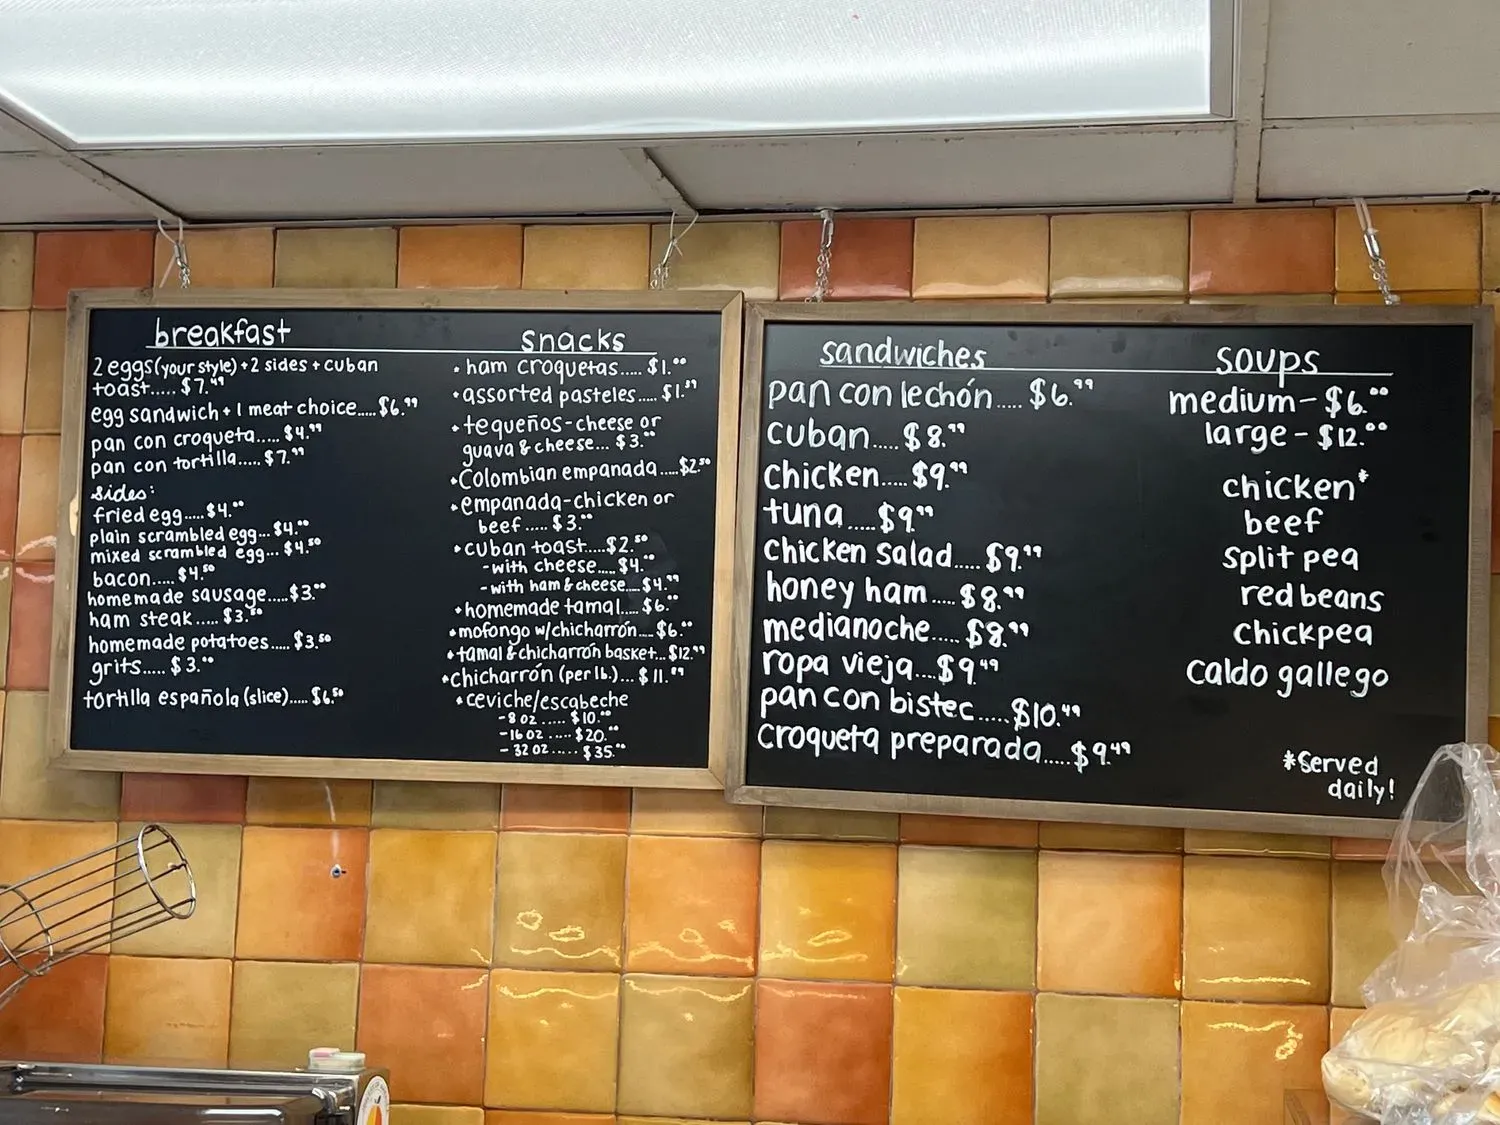 breakfast
2 eggs (your style) + 2 sides + cuban
toast..... $7.49
egg sandwich + 1 meat choice..... $6.99
pan con croqueta..... $4.99
pan con tortilla..... $7.99
sides:
fried egg..... $4.00
plain scrambled egg... $4.00
mixed scrambled egg... $4.50
bacon..... $4.50
homemade sausage..... $3.00
ham steak ..... $3.50
homemade potatoes..... $3.50
grits..... $3.00
tortilla española (slice)..... $6.50
snacks
• ham croquetas..... $1.00
• assorted pasteles..... $1.89
• tequeños-cheese or
guava & cheese... $3.00
• Colombian empanada....$2.50
• empanada-chicken or
beef ..... $3.00
• cuban toast.....$2.50
-with cheese..... $4.00
-with ham & cheese....$4.99
• homemade tamal..... $6.00
• mofongo w/chicharrón.... $6.00
• tamal & chicharrón basket... $12.99
• chicharrón (per lb.)... $11.89
• ceviche/escabeche
-8 oz ..... $10.00
-16 oz ..... $20.00
- 32 oz ..... $35.00
sandwiches
pan con lechón..... $6.99
cuban.....$8.99
chicken..... $9.99
tuna.....$9.99
chicken salad..... $9.99
honey ham..... $8.99
medianoche..... $8.99
ropa vieja....$9.49
pan con bistec.....$10.49
croqueta preparada.....$9.49
soups
medium - $6.00
large - $12.00
chicken*
beef
split pea
red beans
chickpea
caldo gallego
*Served
daily!